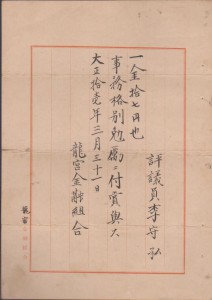 評議員 李守弘
一金拾七円也
事務格別勉励ニ付賞与ス
大正拾壱年三月三十一日
龍宮金融組合